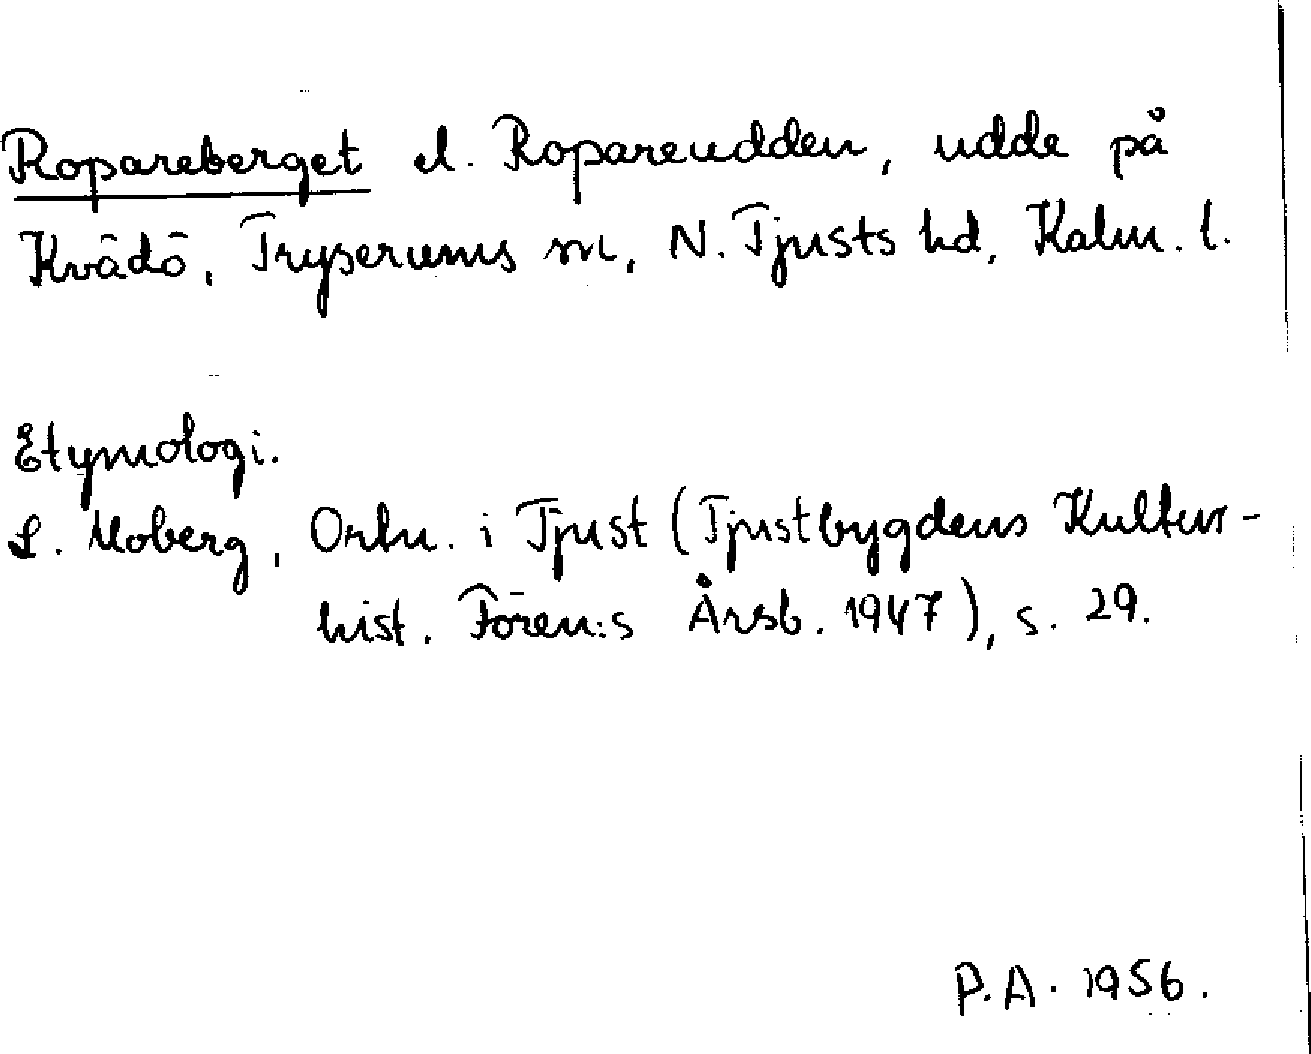 Ropareberget el. Ropareudden, udde på
Kvädö, Tryserums sn, N. Tjusts hd, Kalm. l.
Etymologi.
L. Moberg, Ortn. i Tjust (Tjustbygdens Kultur-
hist. Fören:s Årsb. 1947), s. 29.
P.A. 1956.